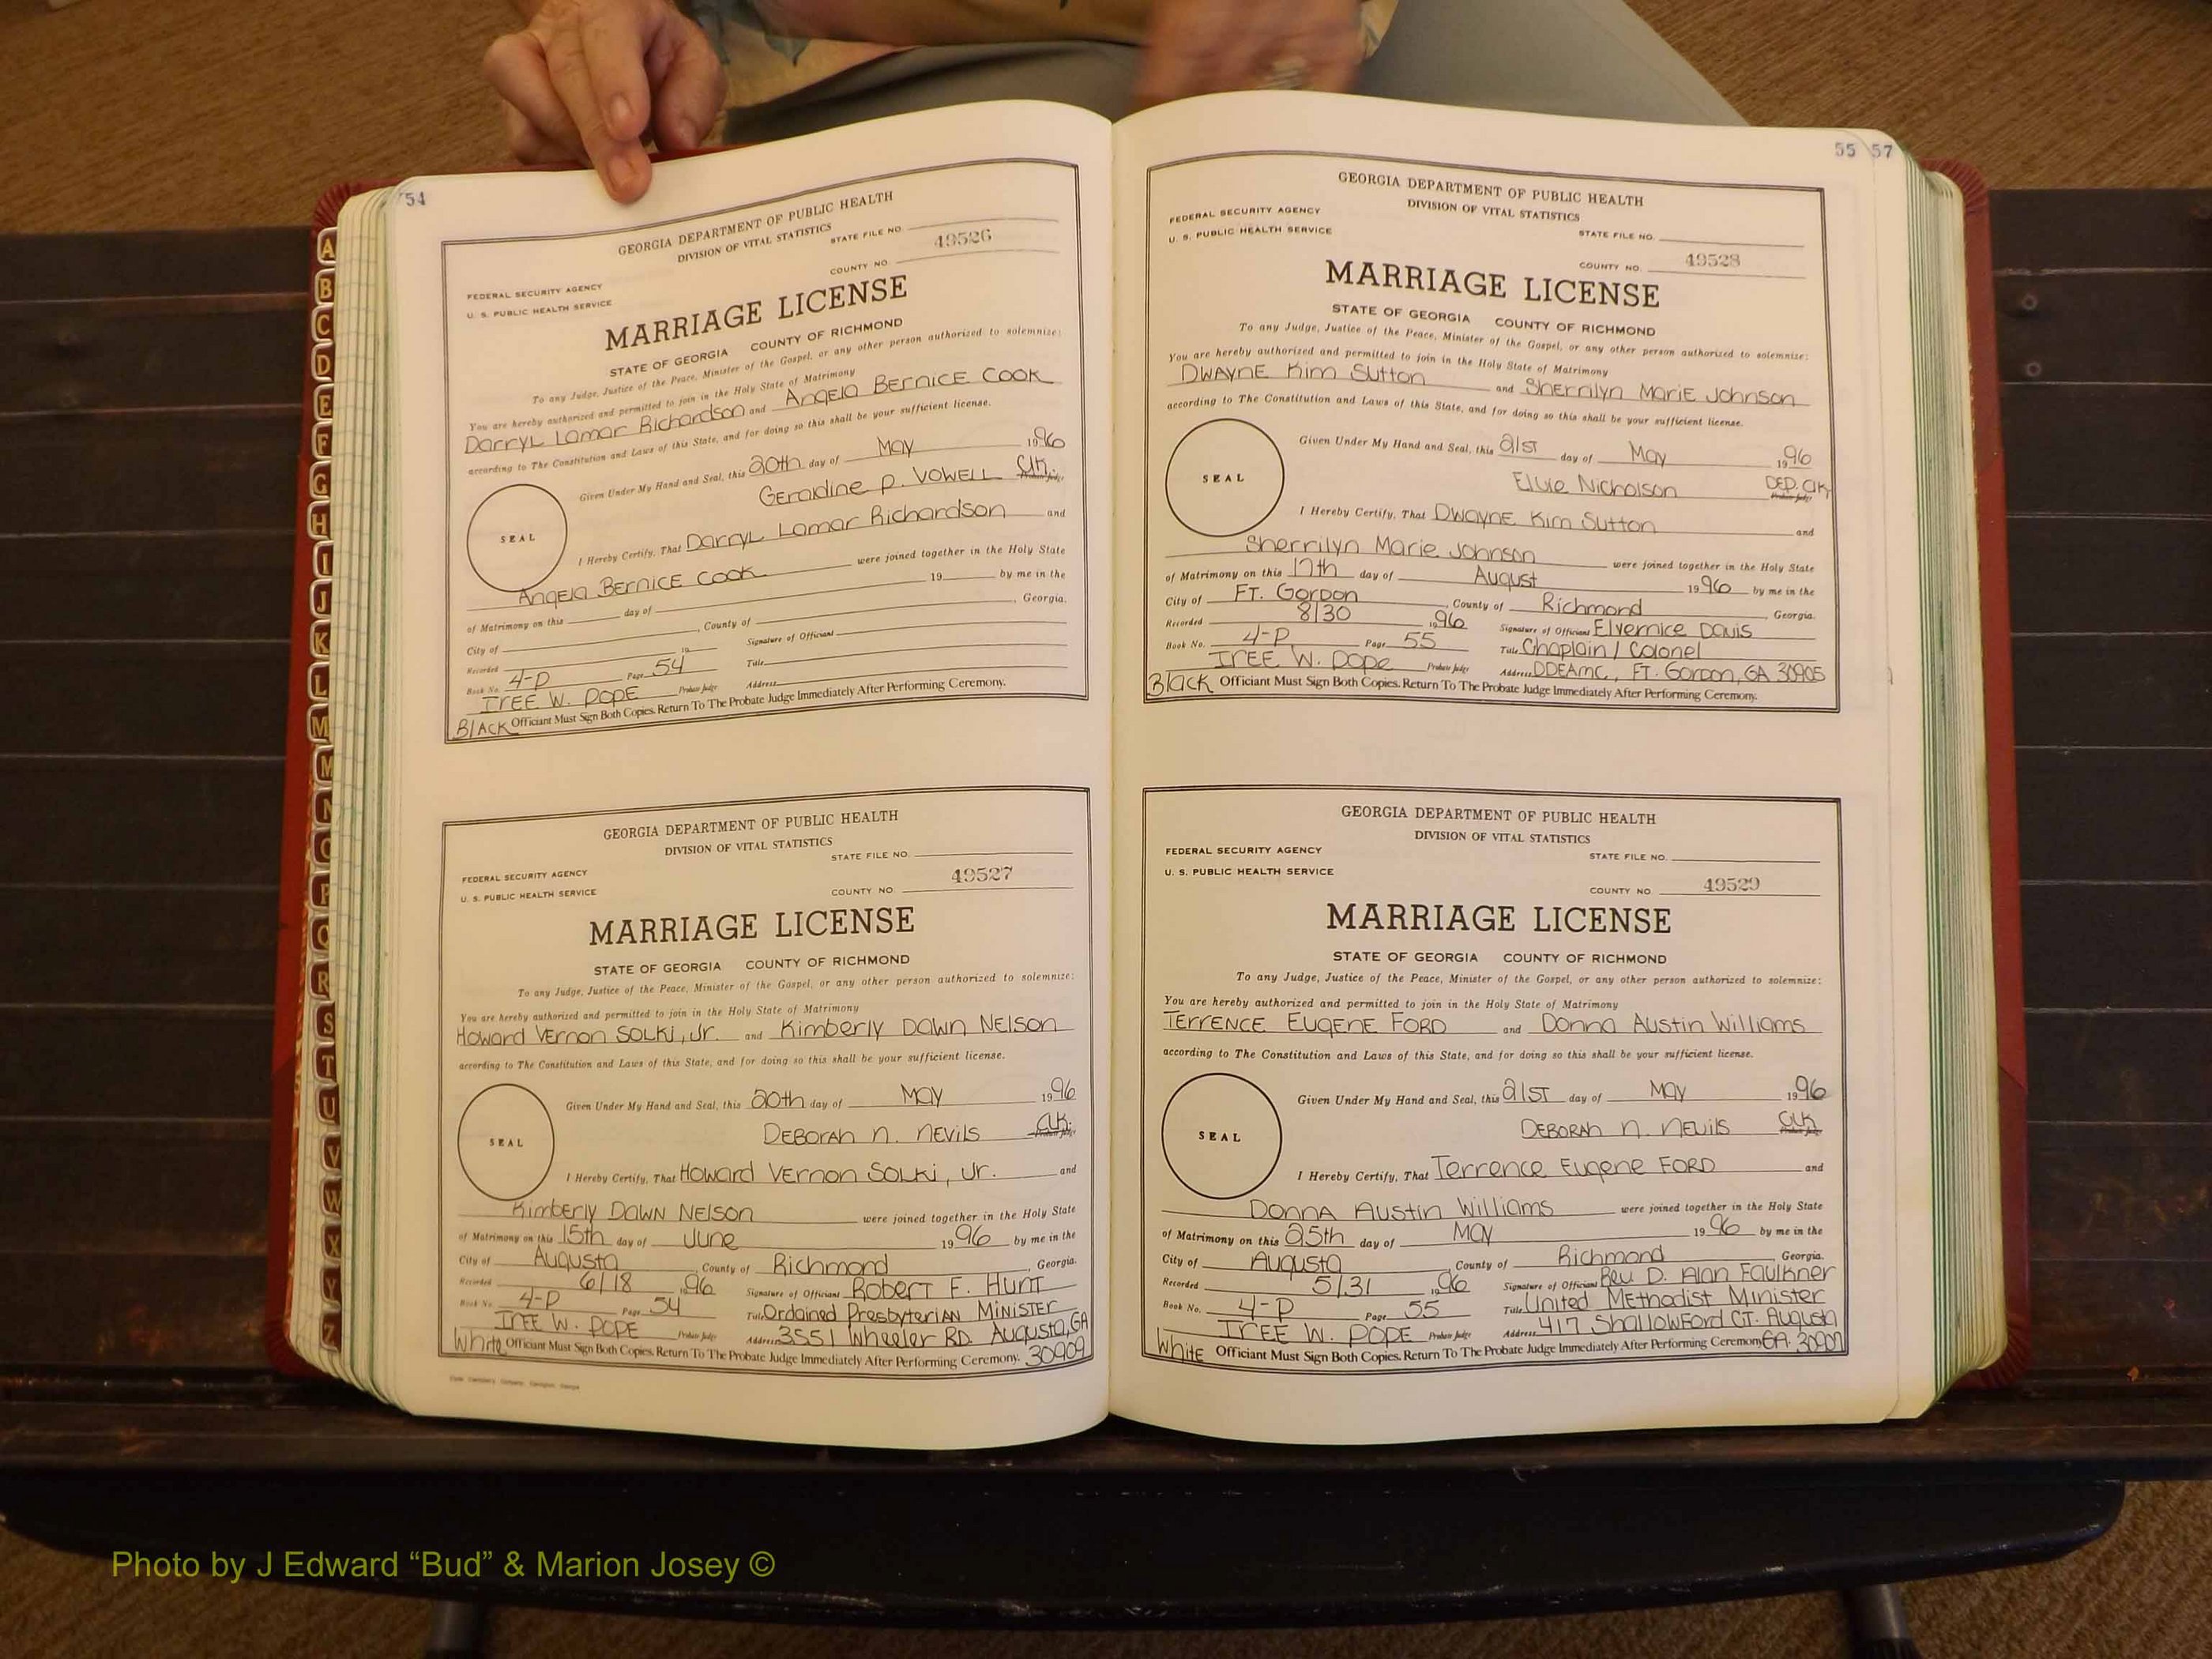 54
GEORGIA DEPARTMENT OF PUBLIC HEALTH
DIVISION OF VITAL STATISTICS
STATE FILE NO.
49526
COUNTY NO.
FEDERAL SECURITY AGENCY
U. S. PUBLIC HEALTH SERVICE
MARRIAGE LICENSE
STATE OF GEORGIA COUNTY OF RICHMOND
To any Judge, Justice of the Peace, Minister of the Gospel, or any other person authorized to solemnize:
You are hereby authorized and permitted to join in the Holy State of Matrimony
Darryl Lamar Richardson and Angela Bernice Cook
according to The Constitution and Laws of this State, and for doing so this shall be your sufficient license.
Given Under My Hand and Seal, this 20th day of May 1996
Geraldine P. Vowell Clk. Probate Judge
SEAL
I Hereby Certify, That Darryl Lamar Richardson and
Angela Bernice Cook were joined together in the Holy State
of Matrimony on this day of 19 by me in the
City of , County of , Georgia.
Recorded 19 Signature of Officiant
Book No. 4-P Page 54 Title
Iree W. Pope Probate Judge Address
Black Officiant Must Sign Both Copies. Return To The Probate Judge Immediately After Performing Ceremony.
GEORGIA DEPARTMENT OF PUBLIC HEALTH
DIVISION OF VITAL STATISTICS
STATE FILE NO.
FEDERAL SECURITY AGENCY
49527
U. S. PUBLIC HEALTH SERVICE
COUNTY NO
MARRIAGE LICENSE
STATE OF GEORGIA COUNTY OF RICHMOND
To any Judge, Justice of the Peace, Minister of the Gospel, or any other person authorized to solemnize:
You are hereby authorized and permitted to join in the Holy State of Matrimony
Howard Vernon Solki, Jr. and Kimberly Dawn Nelson
according to The Constitution and Laws of this State, and for doing so this shall be your sufficient license.
Given Under My Hand and Seal, this 20th day of May 1996
Deborah N. Nevils Clk. Probate Judge
SEAL
I Hereby Certify, That Howard Vernon Solki, Jr. and
Kimberly Dawn Nelson were joined together in the Holy State
of Matrimony on this 15th day of June 1996 by me in the
City of Augusta, County of Richmond, Georgia.
Recorded 6/18 1996 Signature of Officiant Robert F. Hunt
Book No. 4-P Page 54 Title Ordained Presbyterian Minister
Iree W. Pope Probate Judge Address 3551 Wheeler Rd. Augusta, GA
White Officiant Must Sign Both Copies. Return To The Probate Judge Immediately After Performing Ceremony. 30909
55 57
GEORGIA DEPARTMENT OF PUBLIC HEALTH
DIVISION OF VITAL STATISTICS
FEDERAL SECURITY AGENCY
U. S. PUBLIC HEALTH SERVICE
STATE FILE NO.
COUNTY NO. 49528
MARRIAGE LICENSE
STATE OF GEORGIA COUNTY OF RICHMOND
To any Judge, Justice of the Peace, Minister of the Gospel, or any other person authorized to solemnize:
You are hereby authorized and permitted to join in the Holy State of Matrimony
Dwayne Kim Sutton and Sherrilyn Marie Johnson
according to The Constitution and Laws of this State, and for doing so this shall be your sufficient license.
Given Under My Hand and Seal, this 21st day of May 1996
Elvie Nicholson Dep. Clk. Probate Judge
SEAL
I Hereby Certify, That Dwayne Kim Sutton and
Sherrilyn Marie Johnson were joined together in the Holy State
of Matrimony on this 17th day of August 1996 by me in the
City of Ft. Gordon, County of Richmond, Georgia.
Recorded 8/30 1996 Signature of Officiant Elvernice Davis
Book No. 4-P Page 55 Title Chaplain / Colonel
Iree W. Pope Probate Judge Address DDEAMC, Ft. Gordon, GA 30905
Black Officiant Must Sign Both Copies. Return To The Probate Judge Immediately After Performing Ceremony.
GEORGIA DEPARTMENT OF PUBLIC HEALTH
DIVISION OF VITAL STATISTICS
FEDERAL SECURITY AGENCY
STATE FILE NO.
U. S. PUBLIC HEALTH SERVICE
COUNTY NO 49529
MARRIAGE LICENSE
STATE OF GEORGIA COUNTY OF RICHMOND
To any Judge, Justice of the Peace, Minister of the Gospel, or any other person authorized to solemnize:
You are hereby authorized and permitted to join in the Holy State of Matrimony
Terrence Eugene Ford and Donna Austin Williams
according to The Constitution and Laws of this State, and for doing so this shall be your sufficient license.
Given Under My Hand and Seal, this 21st day of May 1996
Deborah N. Nevils Clk. Probate Judge
SEAL
I Hereby Certify, That Terrence Eugene Ford and
Donna Austin Williams were joined together in the Holy State
of Matrimony on this 25th day of May 1996 by me in the
City of Augusta, County of Richmond, Georgia.
Recorded 5/31 1996 Signature of Officiant Rev. D. Alan Faulkner
Book No. 4-P Page 55 Title United Methodist Minister
Iree W. Pope Probate Judge Address 417 Shallowford Ct. Augusta
White Officiant Must Sign Both Copies. Return To The Probate Judge Immediately After Performing Ceremony. GA. 30907
A
B
C
D
E
F
G
H
I
J
K
L
M
M
N
O
P
Q
R
S
T
U
V
W
X
Y
Z
Photo by J Edward “Bud” & Marion Josey ©